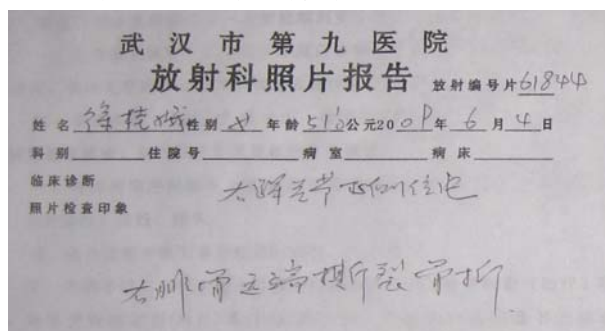 武汉市第九医院
放射科照片报告 放射编号片61844
姓名 徐桂 性别 女 年龄 51岁 公元2009年 6 月 4 日
科别 住院号 病室 病床
临床诊断 右踝关节正侧位片
照片检查印象
右腓骨远端横行裂骨折